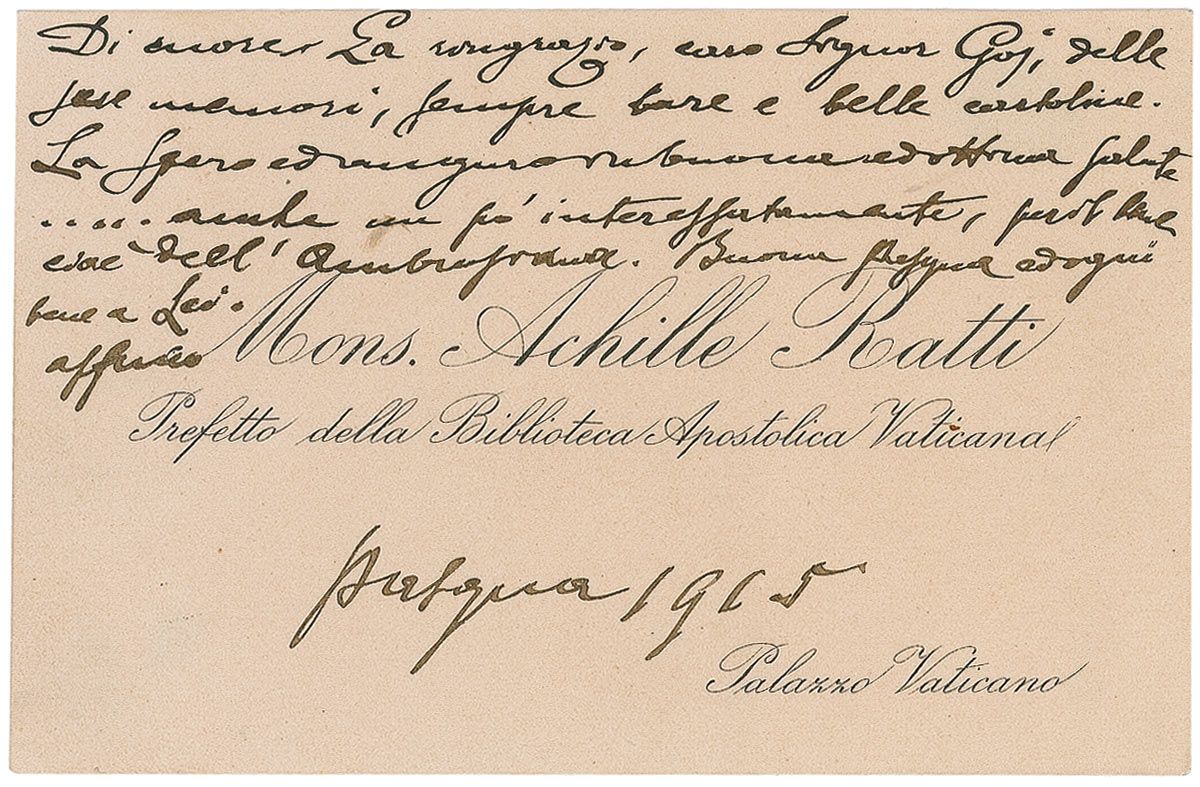 Di cuore La ringrazio, caro Signor Goj, delle
sue memori, sempre care e belle cartoline.
La spero ed auguro in buona ed ottima salute
..... anche un po' interessatamente, per il bene
cioè dell'Ambrosiana. Buona Pasqua ed ogni
bene a Lei.
affmo
Mons. Achille Ratti
Prefetto della Biblioteca Apostolica Vaticana
Pasqua 1915
Palazzo Vaticano